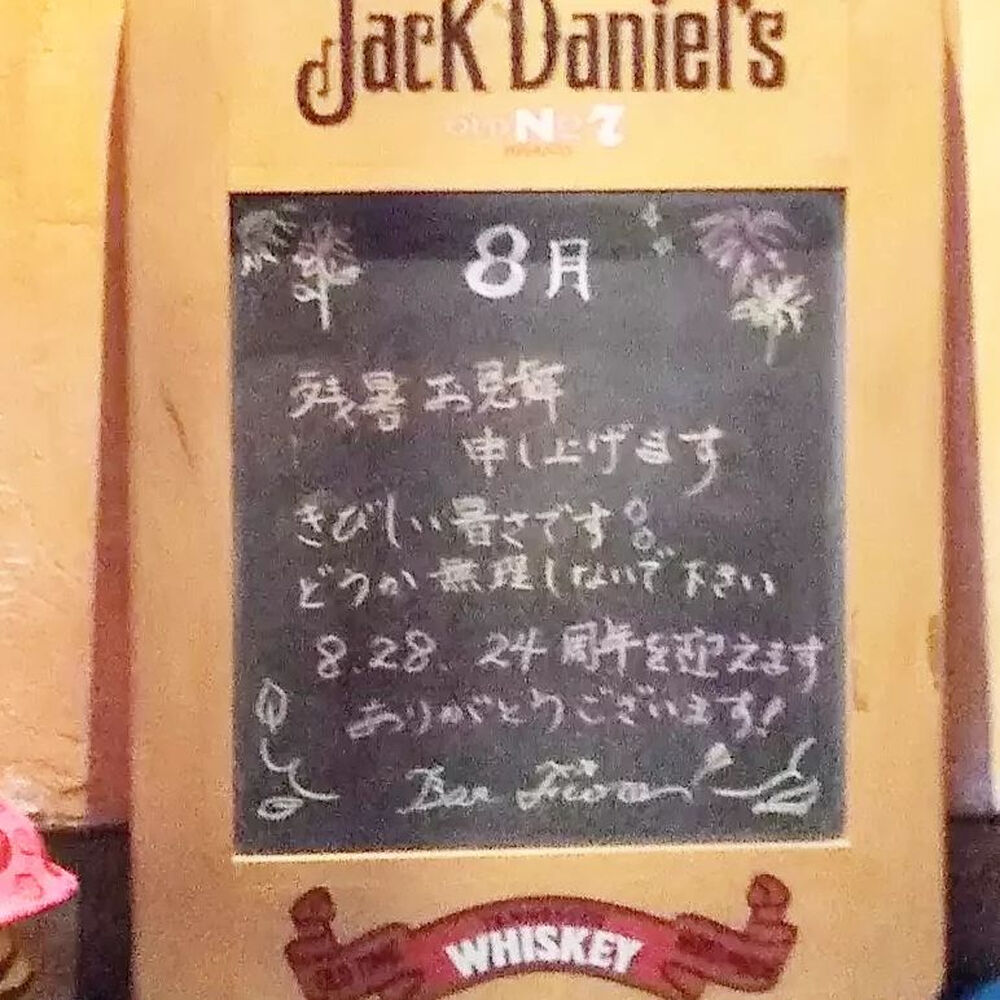 Jack Daniel's
OLD No 7
8月
残暑お見舞
申し上げます
きびしい暑さです。
どうか無理しないで下さい
8.28. 24周年を迎えます
ありがとうございます!
Bar
WHISKEY